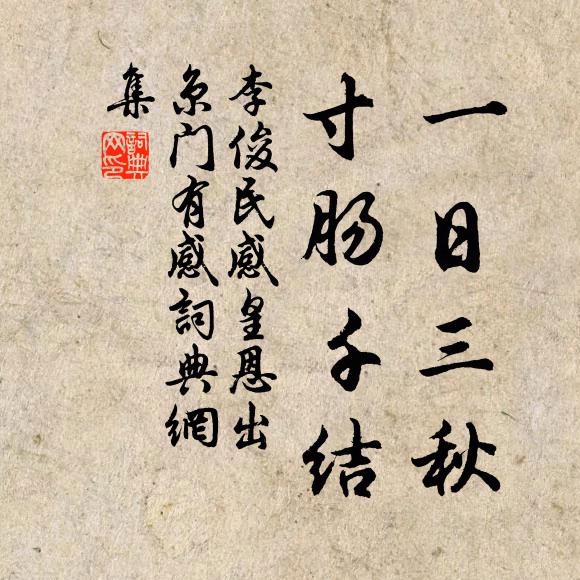 一日三秋
寸肠千结
李俊民感皇恩出
京门有感詞典網
集
詞典
网印